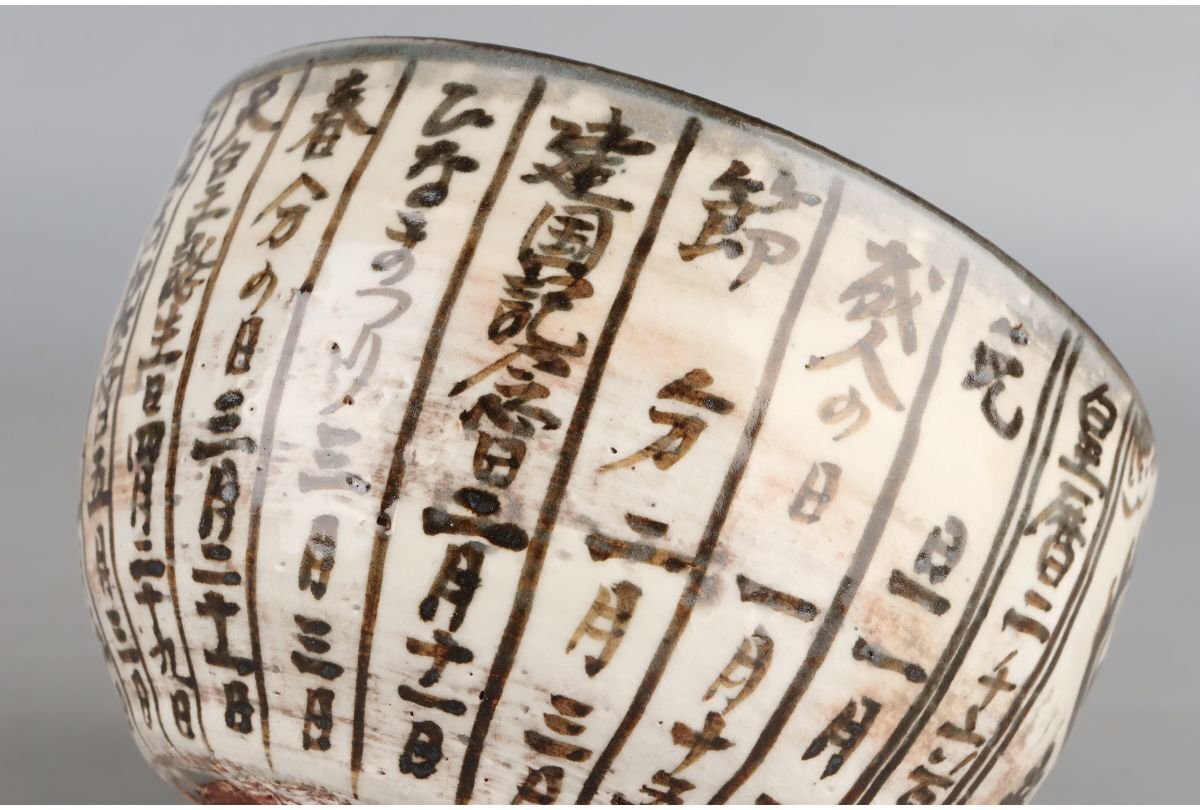 皇暦二千六百
元旦一月
成人の日一月十五
節分二月三日
建国記念日二月十一日
ひなまつり三月三日
春分の日三月二十一日
天皇誕生日四月二十九日
五月三日